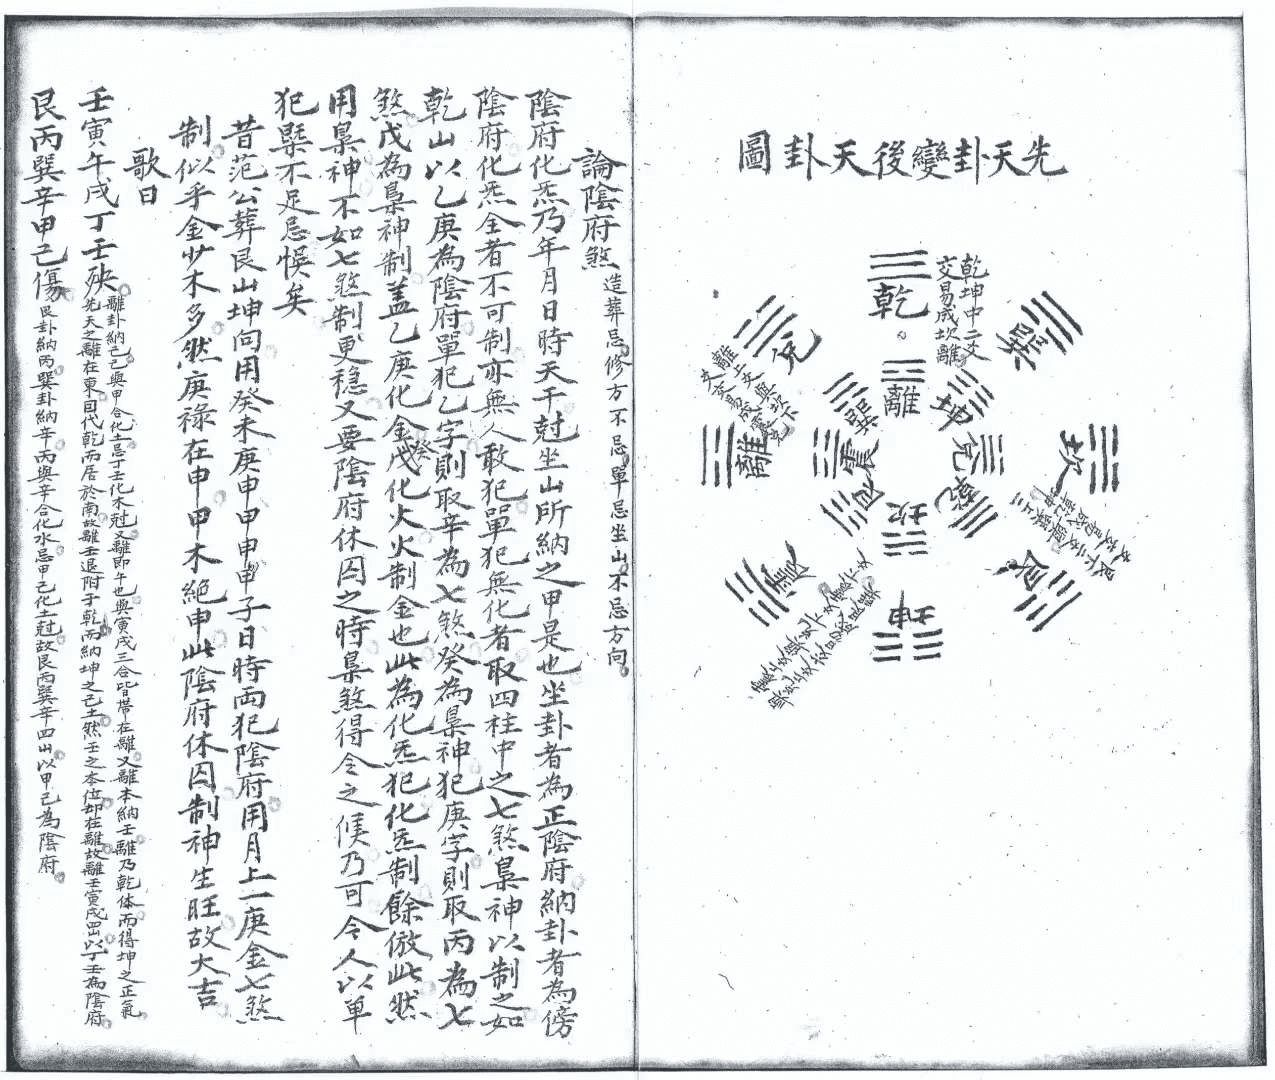 先天卦變後天卦圖
乾
乾坤中二爻
交易成坎離
巽
坎
艮
坤
震
離
兌
離
坤
兌
乾
坎
艮
震
巽
論陰府煞 造葬忌修方不忌單忌坐山不忌方向
陰府化炁乃年月日時天干尅坐山所納之甲是也坐卦者為正陰府納卦者為傍
陰府化炁全者不可制亦無人敢犯單犯無化者取四柱中之七煞梟神以制之如
乾山以乙庚為陰府單犯乙字則取辛為七煞癸為梟神犯庚字則取丙為七
煞戊為梟神制盖乙庚化金戊癸化火火制金也此為化炁犯化炁制餘倣此然
用梟神不如七煞制更穩又要陰府休囚之時梟煞得令之候乃可令人以單
犯槩不足忌悞矣
昔范公葬艮山坤向用癸未庚申甲申甲子日時両犯陰府用月上一庚金七煞
制似乎金少木多然庚祿在申甲木絶申此陰府休囚制神生旺故大吉
歌曰
壬寅午戌丁壬殃 離卦納己己與甲合化土忌丁壬化木尅又離即午也與寅戌三合皆帶在離又離本納壬離乃乾体而得坤之正氣
先天之離在東因代乾而居於南故離壬退附于乾而納坤之己土然壬之本位却在離故離壬寅戌四山以丁壬為陰府
艮丙巽辛甲己傷 艮卦納丙巽卦納辛丙與辛合化水忌甲己化土尅故艮丙巽辛四山以甲己為陰府